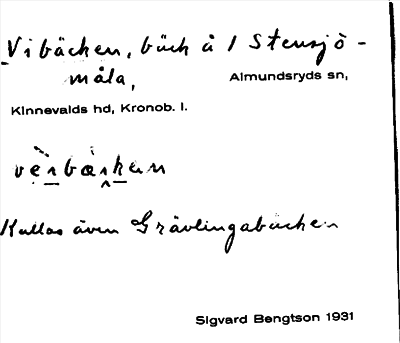 Vibäcken, bäck å 1 Stensjö-
måla, Almundsryds sn,
Kinnevalds hd, Kronob. l.
Kallas även Grävlingabäcken
Sigvard Bengtson 1931